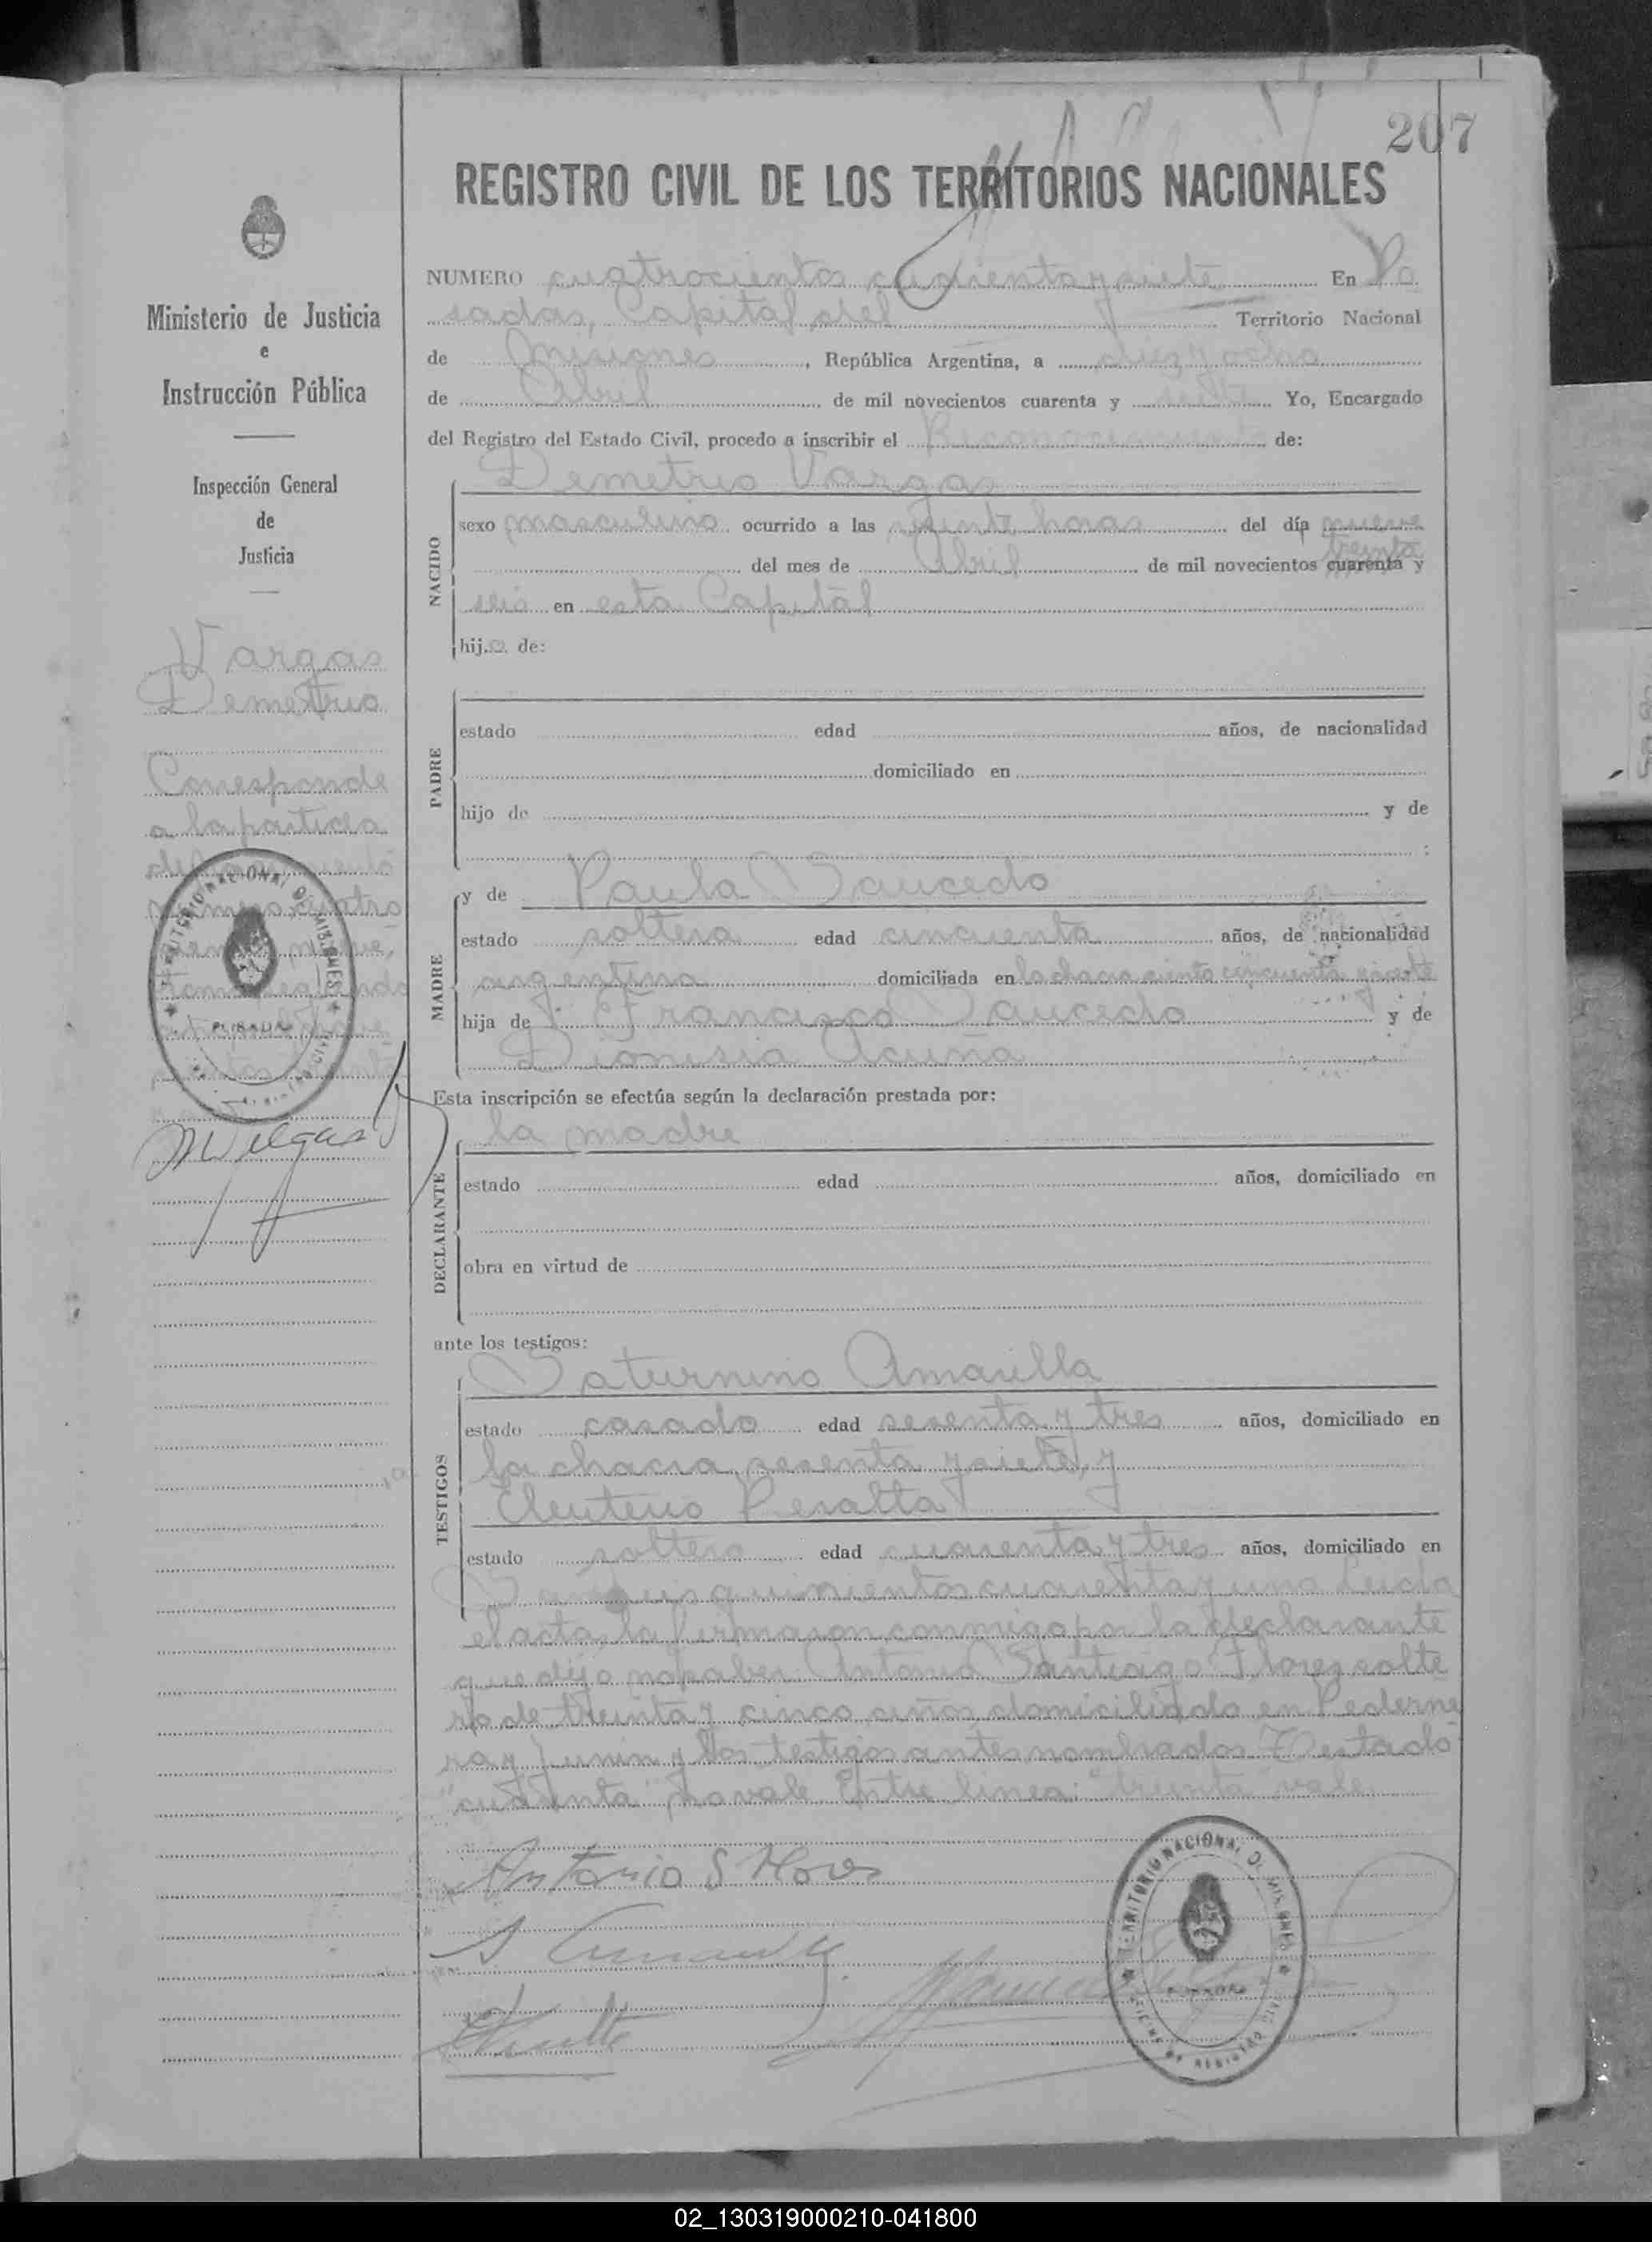 207
REGISTRO CIVIL DE LOS TERRITORIOS NACIONALES
Ministerio de Justicia
e
Instrucción Pública
Inspección General
de
Justicia
Vargas
Demetrio
Corresponde
a la partida
NUMERO cuatrocientos cuarenta y siete En Po
sadas, Capital del Territorio Nacional
de Misiones, República Argentina, a diez y ocho
de Abril de mil novecientos cuarenta y siete Yo, Encargado
del Registro del Estado Civil, procedo a inscribir el Reconocimiento de:
Demetrio Vargas
NACIDO
sexo masculino ocurrido a las veinte horas del día nueve
treinta
del mes de Abril de mil novecientos cuarenta y
seis en esta Capital
hijo de:
PADRE
estado edad años, de nacionalidad
domiciliado en
hijo de y de
:
MADRE
y de Paula Saucedo
estado soltera edad cincuenta años, de nacionalidad
argentina domiciliada en la chacra ciento cincuenta y siete
hija de Francisco Saucedo y de
Dionisia Acuña
Esta inscripción se efectúa según la declaración prestada por:
DECLARANTE
la madre
estado edad años, domiciliado en
obra en virtud de
ante los testigos:
TESTIGOS
Saturnino Amarilla
estado casado edad sesenta y tres años, domiciliado en
la chacra sesenta y siete, y
Eleuterio Peralta
estado soltero edad cuarenta y tres años, domiciliado en
San Luis quinientos cuarenta y uno Leida
el acta, la firmaron conmigo por la declarante
que dijo no saber: Antonio Santiago Flores solte
ro de treinta y cinco años domiciliado en Pederne
ra y Junin y los testigos antes nombrados Testado
"cuarenta" no vale Entre linea: "treinta" vale
Antonio S Flores
TERRITORIO NACIONAL DE MISIONES
POSADAS
02_130319000210-041800